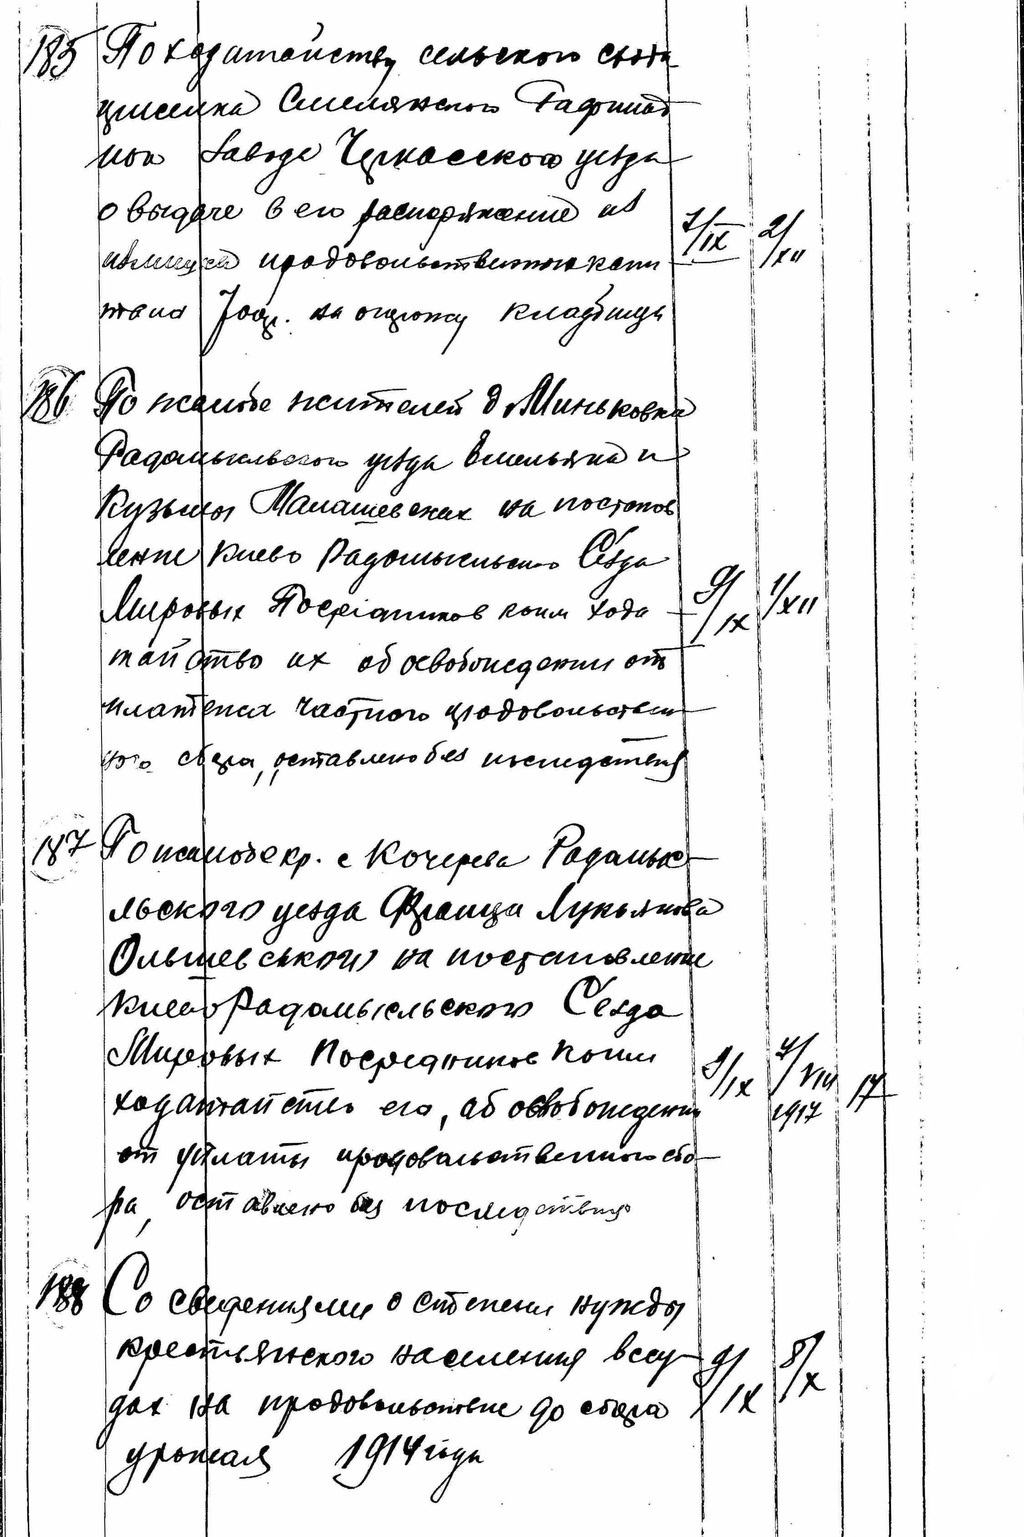 185 По ходатайству сельского схода
присёлка Смелянского Рафинад
ного Завода Черкасского уезда
о выдаче в его распоряжение из
продовольственного капи
тала 700р. на огорожу кладбища
7/IX 2/XII
186 По жалобе жителей д. Миньковка
Радомысльского уезда Емельяна и
Кузьмы Малашевских на постанов
ление Киево Радомысльского Сезда
Мировых Посредников коим хода
9/IX 1/XII
тайство их об освобождении от
платежа частного продовольствен
ного сбора, оставлено без последствия
187 По жалобе кр. с Кочерева Радомыс
льского уезда Франца Лукьянова
Ольшевського на постановление
Киево Радомысльского Сезда
Мировых Посредников коим
9/IX 7/VIII 1917 17
ходатайство его, об освобождении
от уплаты продовольственного сбо
ра, оставлено без последствия
188 Со сведениями о степени нужды
крестьянского населения в ссу
9/IX 8/X
дах на продовольствие до сбора
урожая 1914 года